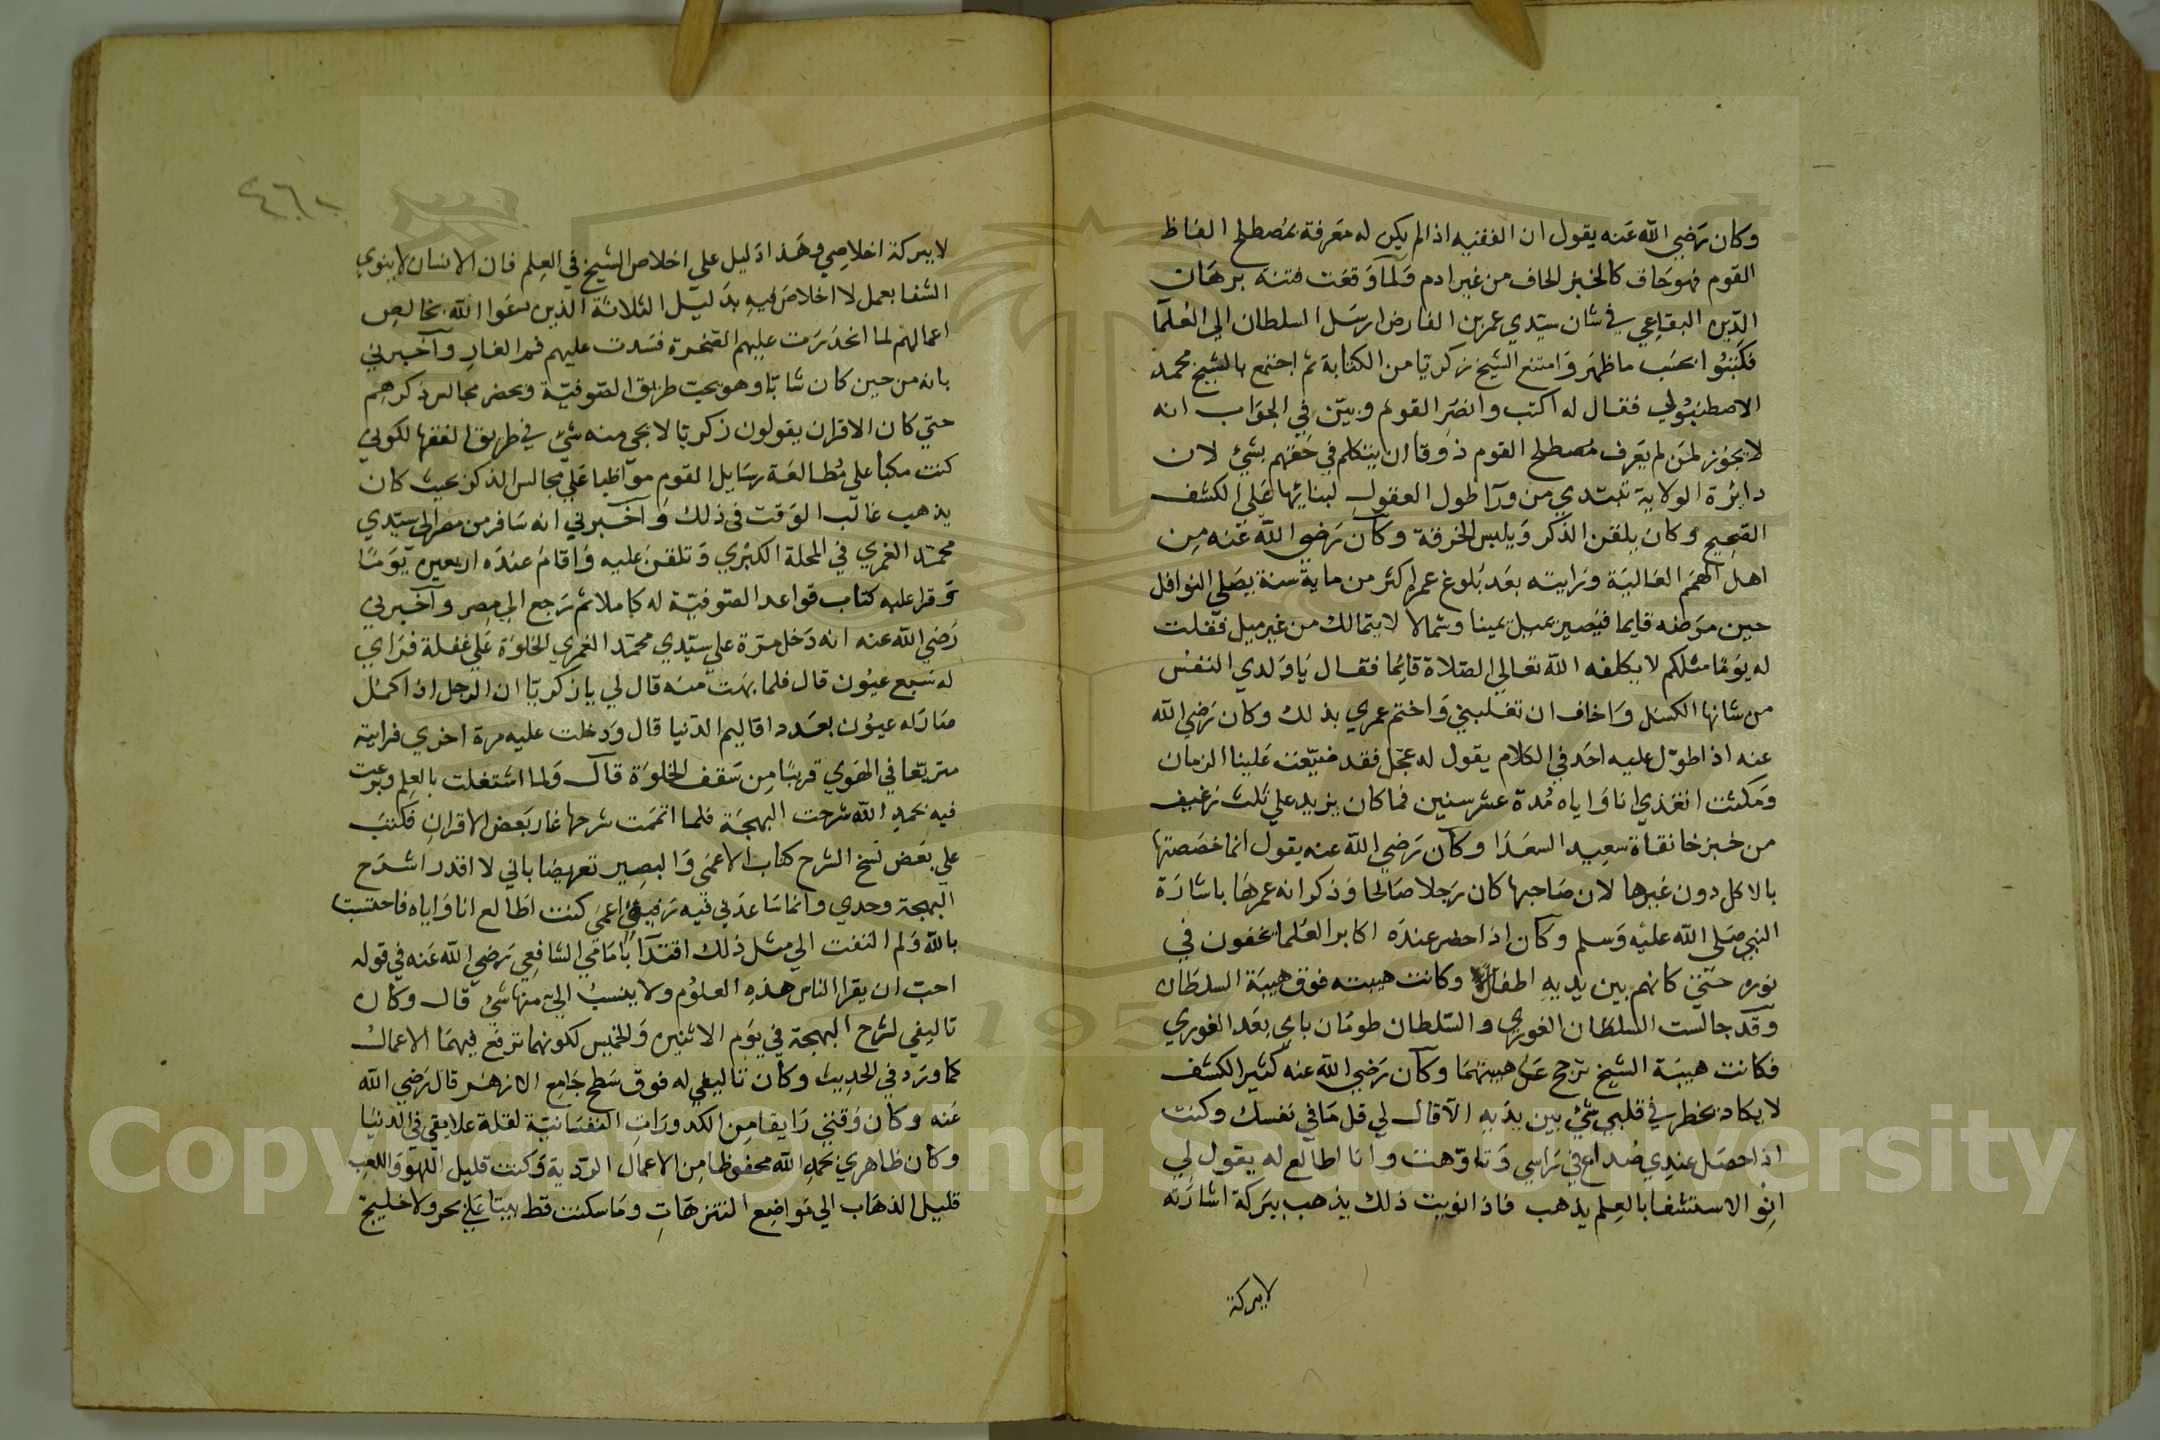 وكان رضي الله عنه يقول ان الفقيه اذا لم يكن له معرفة بمصطلح الفاظ
القوم فهو جاف كالخبز الحاف من غير ادم ولما وقعت فتنة برهان
الدين البقاعي في شان سيدي عمر بن الفارض ارسل السلطان الي العلما
فكتبوا بحسب ما ظهر وامتنع الشيخ زكريا من الكتابة ثم اجتمع بالشيخ محمد
الاصطنبولي فقال له اكتب وانصر القوم وبين في الجواب انه
لا يجوز لمن لم يعرف مصطلح القوم ذوقا ان يتكلم في حقهم بشئ لان
دايرة الولاية تبتدي من ورآ طول العقول لبنائها علي الكشف
الصحيح وكان يلقن الذكر ويلبس الخرقة وكان رضي الله عنه من
اهل الهمم العالية ورايته بعد بلوغ عمره اكثر من ماية سنة يصلي النوافل
حين مرضه قايما فيصير يميل يمينا وشمالا لا يتمالك من غير ميل فقلت
له يوما مثلكم لا يكلفه الله تعالي الصلاة قائما فقال يا ولدي النفس
من شانها الكسل واخاف ان تغلبني واختم عمري بذلك وكان رضي الله
عنه اذا طول عليه احد في الكلام يقول له عجل فقد ضيعت علينا الزمان
ومكثت اتغذي انا واياه مدة عشر سنين فما كان يزيد علي ثلث رغيف
من خبز خانقاة سعيد السعدا وكان رضي الله عنه يقول انما خصصتها
بالاكل دون غيرها لان صاحبها كان رجلا صالحا وذكر انه عمرها باشارة
النبي صلي الله عليه وسلم وكان اذا حضر عنده اكابر العلما يخفون في
نوره حتي كانهم بين يديه اطفال وكانت هيبته فوق هيبة السلطان
وقد جالست السلطان الغوري والسلطان طومان باي بعد الغوري
فكانت هيبة الشيخ ترجح علي هيبتهما وكان رضي الله عنه كثير الكشف
لا يكاد يخطر في قلبي شئ بين يديه الا قال لي قل ما في نفسك وكنت
اذا حصل عندي صداع في راسي وتاوهت وانا اطالع له يقول لي
انو الاستشفا بالعلم يذهب فاذا نويت ذلك يذهب ببركة اشارته
لا ببركة
٤٦٠
لا ببركة اخلاصي وهذا دليل علي اخلاص الشيخ في العلم فان الانسان لا ينوي
الشفا بعمل لا اخلاص فيه بدليل الثلاثة الذين دعوا الله بخالص
اعمالهم لما انحدرت عليهم الصخرة فسدت عليهم فم الغار وآخبرني
بانه من حين كان شابا وهو يحب طريق الصوفية ويحضر مجالس ذكرهم
حتي كان الاقران يقولون زكريا لا يجي منه شئ في طريق الفقها لكوني
كنت مكبا علي مطالعة رسايل القوم مواظبا علي مجالس الذكر بحيث كان
يذهب غالب الوقت في ذلك وآخبرني انه سافر من مصر الي سيدي
محمد الغمري في المحلة الكبري وتلقن عليه واقام عنده اربعين يوما
وقرا عليه كتاب قواعد الصوفية له كاملا ثم رجع الي مصر وآخبرني
رضي الله عنه انه دخل مرة علي سيدي محمد الغمري الخلوة علي غفلة فراي
له سبع عيون قال فلما بهت منه قال لي يا زكريا ان الرجل اذا كمل
صار له عيون بعدد اقاليم الدنيا قال ودخلت عليه مرة اخري فرايته
متربعا في الهوي قريبا من سقف الخلوة قال ولما اشتغلت بالعلم وبرعت
فيه بحمد الله شرحت البهجة فلما اتممت شرحها غار بعض الاقران فكتب
علي بعض نسخ الشرح كتاب الاعمي والبصير تعريضا باني لا اقدر اشرح
البهجة وحدي وانما ساعدني فيه رفيق اعمي كنت اطالع انا واياه فاحتسبت
بالله ولم التفت الي مثل ذلك اقتدآ بامامي الشافعي رضي الله عنه في قوله
احب ان يقرا الناس هذه العلوم ولا ينسب الي منها شئ قال وكان
تاليفي لشرح البهجة في يوم الاثنين والخميس لكونهما ترفع فيهما الاعمال
كما ورد في الحديث وكان تاليفي له فوق سطح جامع الازهر قال رضي الله
عنه وكان وقتي رايقا من الكدورات النفسانية لقلة علايقي في الدنيا
وكان ظاهري بحمد الله محفوظا من الاعمال الردية وكنت قليل اللهو واللعب
قليل الذهاب الي مواضع التنزهات وما سكنت قط بيتا علي بحر ولا خليج
Copyright © King Saud University